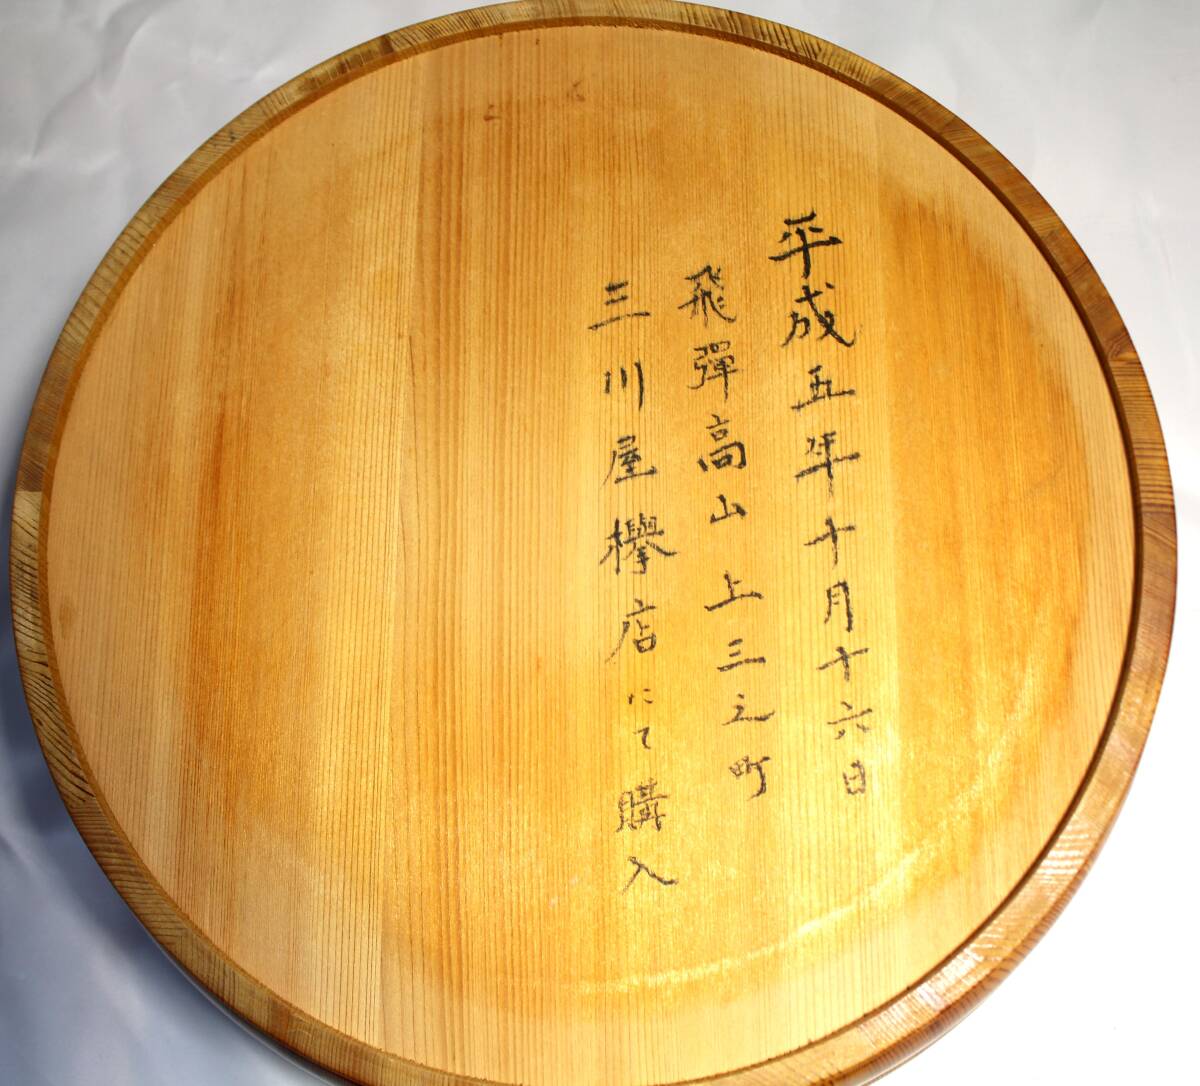 平成五年十月十六日
飛彈高山上三之町
三川屋欅店にて購入